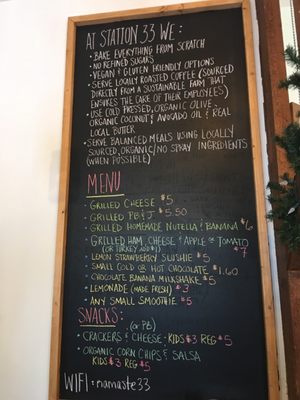 AT STATION 33 WE:
• BAKE EVERYTHING FROM SCRATCH
• NO REFINED SUGARS
• VEGAN & GLUTEN FRIENDLY OPTIONS
• SERVE LOCALLY ROASTED COFFEE (SOURCED
DIRECTLY FROM A SUSTAINABLE FARM THAT
ENSURES THE CARE OF THEIR EMPLOYEES)
• USE COLD PRESSED, ORGANIC OLIVE,
ORGANIC COCONUT & AVOCADO OIL & REAL
LOCAL BUTTER
• SERVE BALANCED MEALS USING LOCALLY
SOURCED, ORGANIC/NO SPRAY INGREDIENTS
(WHEN POSSIBLE)
MENU
• GRILLED CHEESE $5
• GRILLED PB & J $5.50
• GRILLED HOMEMADE NUTELLA & BANANA $6
• GRILLED HAM, CHEESE & APPLE OR TOMATO
(OR TURKEY ADD $1) $7
• LEMON STRAWBERRY SLUSHIE $5
• SMALL COLD OR HOT CHOCOLATE $1.60
• CHOCOLATE BANANA MILKSHAKE $5
• LEMONADE (MADE FRESH) $3
• ANY SMALL SMOOTHIE $5
SNACKS:
(OR PB)
• CRACKERS & CHEESE - KIDS $3 REG $5
• ORGANIC CORN CHIPS & SALSA
KIDS $3 REG $5
WIFI: namaste33